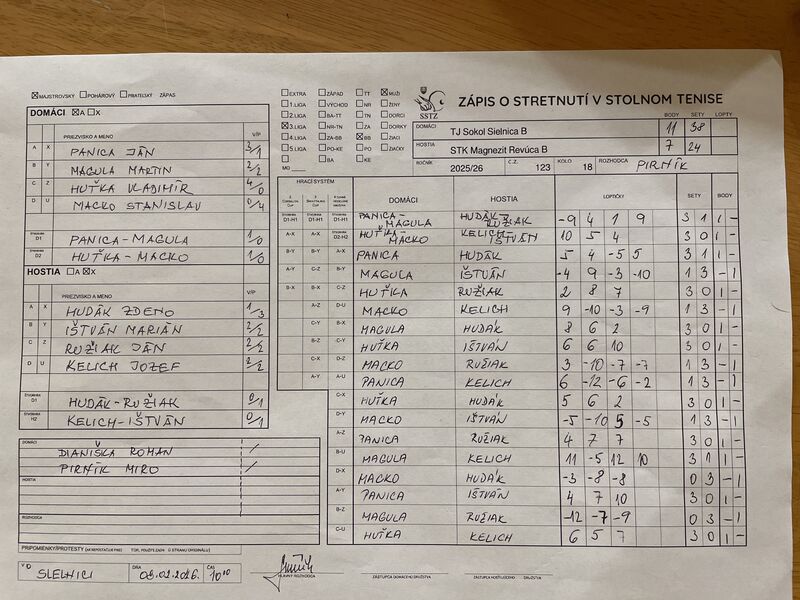 MAJSTROVSKÝ POHÁROVÝ PRIATEĽSKÝ ZÁPAS
DOMÁCI A X
PRIEZVISKO A MENO V/P
A X PANICA JÁN 3/1
B Y MAGULA MARTIN 2/2
C Z HUŤKA VLADIMÍR 4/0
D U MACKO STANISLAV 0/4
D1 PANICA-MAGULA 1/0
D2 HUŤKA-MACKO 1/0
HOSTIA A X
PRIEZVISKO A MENO V/P
A X HUDÁK ZDENO 1/3
B Y IŠTVÁN MARIÁN 2/2
C Z RUŽIAK JÁN 2/2
D U KELICH JOZEF 2/2
D1 HUDÁK-RUŽIAK 0/1
H2 KELICH-IŠTVÁN 0/1
DOMÁCI
DIANIŠKA ROMAN /
PIRŇÍK MIRO /
HOSTIA
ROZHODCA
PRIPOMIENKY/PROTESTY
V O SLELNICI DŇA 08.02.2026. ČAS 10:00
EXTRA ZÁPAD TT MUŽI
1.LIGA VÝCHOD NR ŽENY
2.LIGA BA-TT TN DORCI
3.LIGA NR-TN ZA DORKY
4.LIGA ZA-BB BB ŽIACI
5.LIGA PO-KE PO
BA KE
MO
SSTZ
ZÁPIS O STRETNUTÍ V STOLNOM TENISE
BODY SETY LOPTY
DOMÁCI TJ Sokol Sielnica B 11 38
HOSTIA STK Magnezit Revúca B 7 24
ROČNÍK 2025/26 Č.Z. 123 KOLO 18 ROZHODCA PIRŇÍK
HRACÍ SYSTÉM
DOMÁCI HOSTIA LOPTIČKY SETY BODY
D1-H1 D1-H1 D1-H1 PANICA-MAGULA HUDÁK-RUŽIAK -9 4 1 9 3 1 1 -
A-X A-X D2-H2 HUŤKA-MACKO KELICH-IŠTVÁN 10 5 4 3 0 1 -
B-Y B-Y A-X PANICA HUDÁK 5 4 -5 5 3 1 1 -
A-Y C-Z B-Y MAGULA IŠTVÁN -4 9 -3 -10 1 3 - 1
B-X B-X C-Z HUŤKA RUŽIAK 2 8 7 3 0 1 -
A-Z D-U MACKO KELICH 9 -10 -3 -9 1 3 - 1
C-Y B-X MAGULA HUDÁK 8 6 2 3 0 1 -
B-Z C-Y HUŤKA IŠTVÁN 6 6 10 3 0 1 -
C-X D-Z MACKO RUŽIAK 3 -10 -7 -7 1 3 - 1
A-Y A-U PANICA KELICH 6 -12 -6 -2 1 3 - 1
C-X HUŤKA HUDÁK 5 6 2 3 0 1 -
D-Y MACKO IŠTVÁN -5 -10 5 -5 1 3 - 1
A-Z PANICA RUŽIAK 4 7 7 3 0 1 -
B-U MAGULA KELICH 11 -5 12 10 3 1 1 -
D-X MACKO HUDÁK -3 -8 -8 0 3 - 1
A-Y PANICA IŠTVÁN 4 7 10 3 0 1 -
B-Z MAGULA RUŽIAK -12 -7 -9 0 3 - 1
C-U HUŤKA KELICH 6 5 7 3 0 1 -
HLAVNÝ ROZHODCA ZÁSTUPCA DOMÁCEHO DRUŽSTVA ZÁSTUPCA HOSŤUJÚCEHO DRUŽSTVA